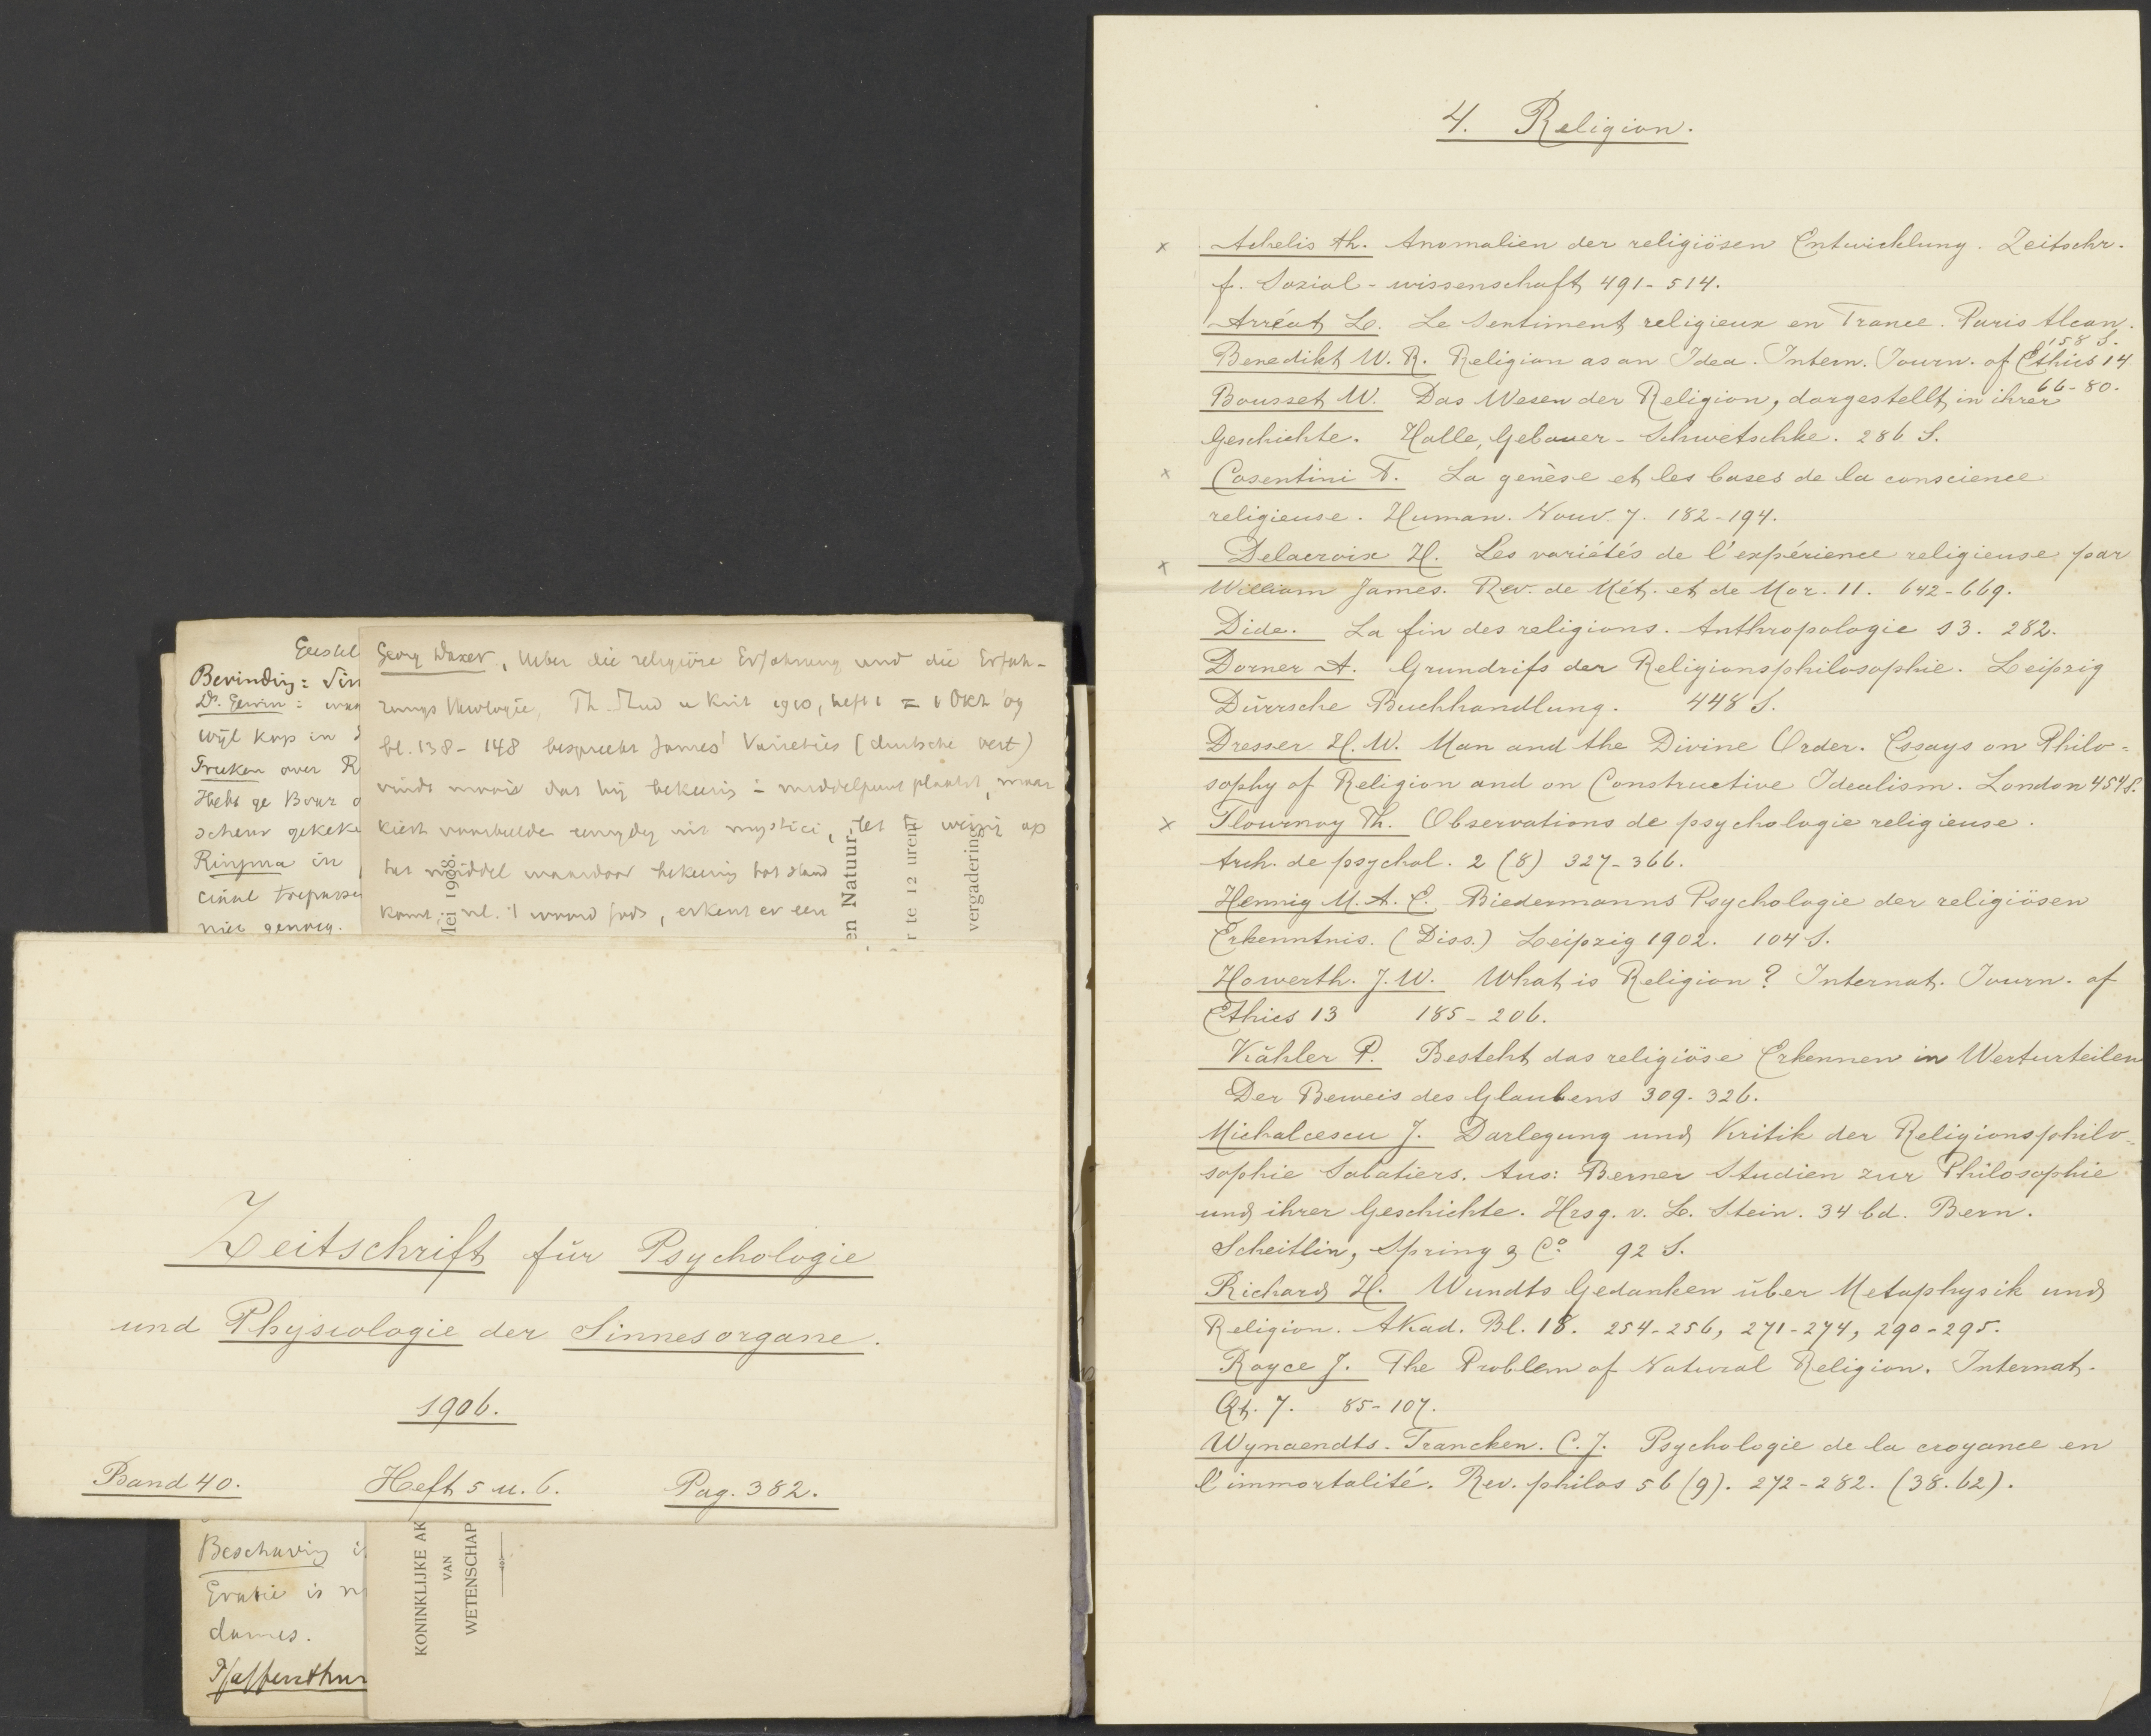 Geestel
Bevinding: Sin
Dr. Gerwin:
wijl kap in
Fruken over R
Hebt ge Baur
scheur gekeke
Ringma in
niet genoeg.
Georg Daxer, Ueber die religiöse Erfahrung und die Erfah-
rungs theologie, Th. Stud u Krit 1910, heft 1 = 1 Okt '09
bl. 138 - 148 bespreekt James' Varieties (duitsche vert)
vindt mooi dat hij bekeering i middelpunt plaatst, maar
kiest voorbeelden eenzydig uit mystici, let weinig op
het middel waardoor bekeering tot stand
komt, nl. 't woord Gods, erkent er een
Mei 1908.
en Natuur-
r te 12 uren
vergadering
Zeitschrift für Psychologie
und Physiologie der Sinnesorgane.
1906.
Band 40. Heft 5 u. 6. Pag. 382.
Beschaving i
is n
dames.
Pfaffenthur
KONINKLIJKE AK
VAN
WETENSCHAP
4. Religion.
x Achelis Th. Anomalien der religiösen Entwicklung. Zeitschr.
f. Sozial - wissenschaft 491 - 514.
Arréat L. Le Sentiment religieux en France. Paris Alcan.
158 S.
Benedikt W. R. Religion as an Idea. Intern. Journ. of Ethics 14
66 - 80.
Bousset W. Das Wesen der Religion, dargestellt in ihrer
Geschichte. Halle, Gebauer - Schwetschke. 286 S.
x Cosentini F. La genèse et les bases de la conscience
religieuse. Human. Nouv. 7. 182 - 194.
x Delacroix H. Les variétés de l'expérience religieuse par
William James. Rev. de Mét. et de Mor. 11. 642 - 669.
Dide. La fin des religions. Anthropologie 13. 282.
Dorner A. Grundrifs der Religionsphilosophie. Leipzig
Dürrsche Buchhandlung. 448 S.
Dresser H. W. Man and the Divine Order. Essays on Philo-
sophy of Religion and on Constructive Idealism. London 454 S.
x Flournoy Th. Observations de psychologie religieuse.
Arch. de psychol. 2 (8) 327 - 366.
Hennig M. A. E. Biedermanns Psychologie der religiösen
Erkenntnis. (Diss.) Leipzig 1902. 104 S.
Howerth. J. W. What is Religion? Internat. Journ. of
Ethics 13 185 - 206.
Kähler P. Besteht das religiöse Erkennen in Werturteilen
Der Beweis des Glaubens 309 - 326.
Michalcescu J. Darlegung und Kritik der Religionsphilo-
sophie Sabatiers. Aus: Berner Studien zur Philosophie
und ihrer Geschichte. Hrsg. v. L. Stein. 34 bd. Bern.
Scheitlin, Spring & Co. 92 S.
Richard H. Wundts Gedanken über Metaphysik und
Religion. Akad. Bl. 18. 254 - 256, 271 - 274, 290 - 295.
Royce J. The Problem of Natural Religion. Internat.
Qt. 7. 85 - 107.
Wynaendts - Francken. C. J. Psychologie de la croyance en
l'immortalité. Rev. philos 56 (9). 272 - 282. (38. 62).